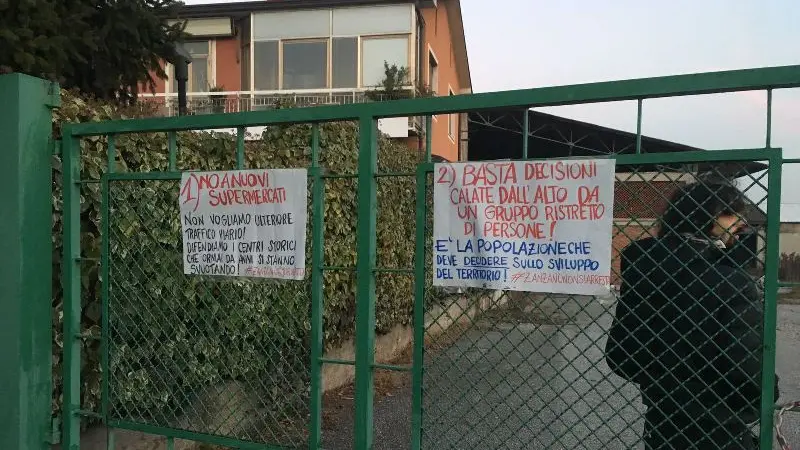 1) NO A NUOVI
SUPERMERCATI
NON VOGLIAMO ULTERIORE
TRAFFICO VIARIO!
DIFENDIAMO I CENTRI STORICI
CHE ORMAI DA ANNI SI STANNO
SVUOTANDO!
2) BASTA DECISIONI
CALATE DALL'ALTO DA
UN GRUPPO RISTRETTO
DI PERSONE!
E' LA POPOLAZIONE CHE
DEVE DECIDERE SULLO SVILUPPO
DEL TERRITORIO! #ZANZANUNONSIARRESTA